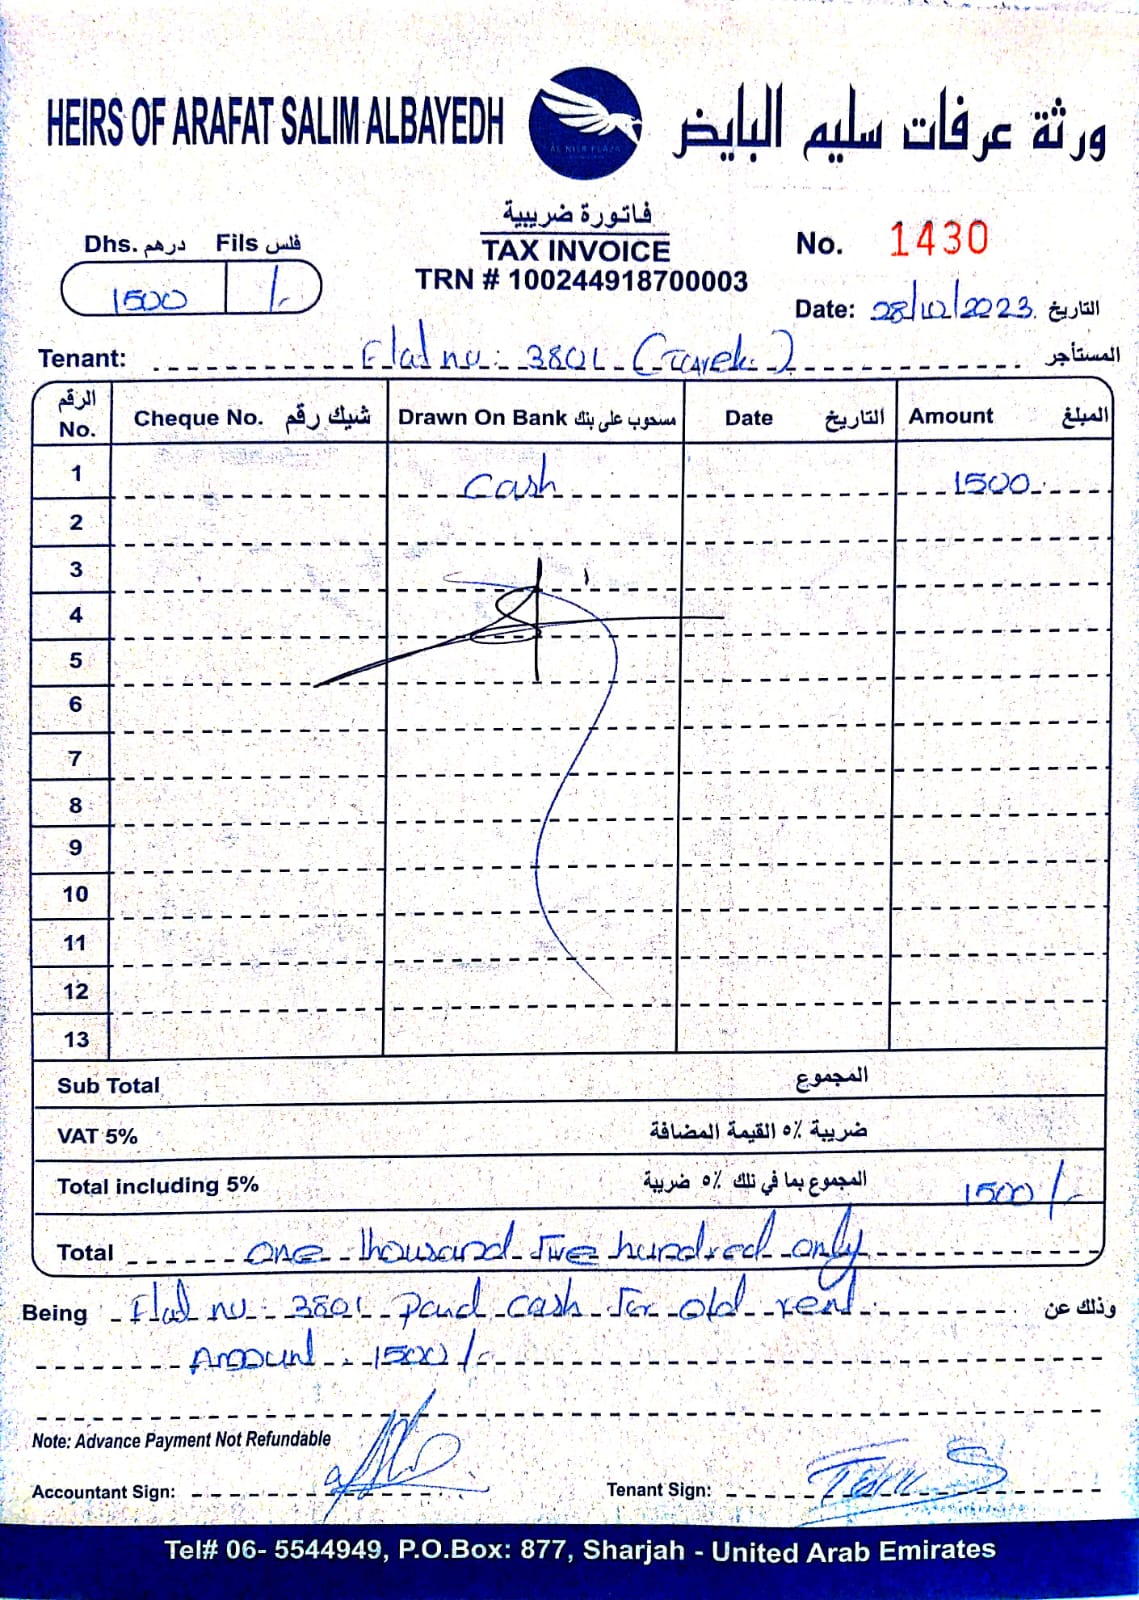 HEIRS OF ARAFAT SALIM ALBAYEDH
ورثة عرفات سليم البايض
AL NISR PLAZA
فاتورة ضريبية
TAX INVOICE
TRN # 100244918700003
Dhs. درهم Fils فلس
1500 /-
No. 1430
Date: 28/10/2023 التاريخ
Tenant: Flat no: 3801 (Tarek) المستأجر
الرقم No. Cheque No. شيك رقم Drawn On Bank مسحوب على بنك Date التاريخ Amount المبلغ
1 Cash 1500
2
3
4
5
6
7
8
9
10
11
12
13
Sub Total المجموع
VAT 5% ضريبة ٥٪ القيمة المضافة
Total including 5% المجموع بما في ذلك ٥٪ ضريبة 1500/-
Total one thousand five hundred only
Being Flat no: 3801 paid cash for old rent وذلك عن
Amount: 1500/-
Note: Advance Payment Not Refundable
Accountant Sign: Tenant Sign:
Tel# 06- 5544949, P.O.Box: 877, Sharjah - United Arab Emirates